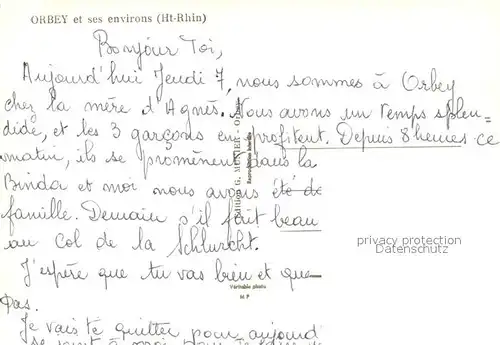 ORBEY et ses environs (Ht-Rhin)
Bonjour Toi,
Aujourd'hui Jeudi 7, nous sommes à Orbey
chez la mère d'Agnès. Nous avons un temps splen=
dide, et les 3 garçons en profitent. Depuis 8 heures ce
matin, ils se promènent dans la
Binda et moi nous avons été de
famille. Demain s'il fait beau
au col de la Schlurcht.
J'espère que tu vas bien et que
pas.
Je vais te quitter pour aujourd
Edition G.
Reproduction interdite
Véritable photo
M P
privacy protection
Datenschutz